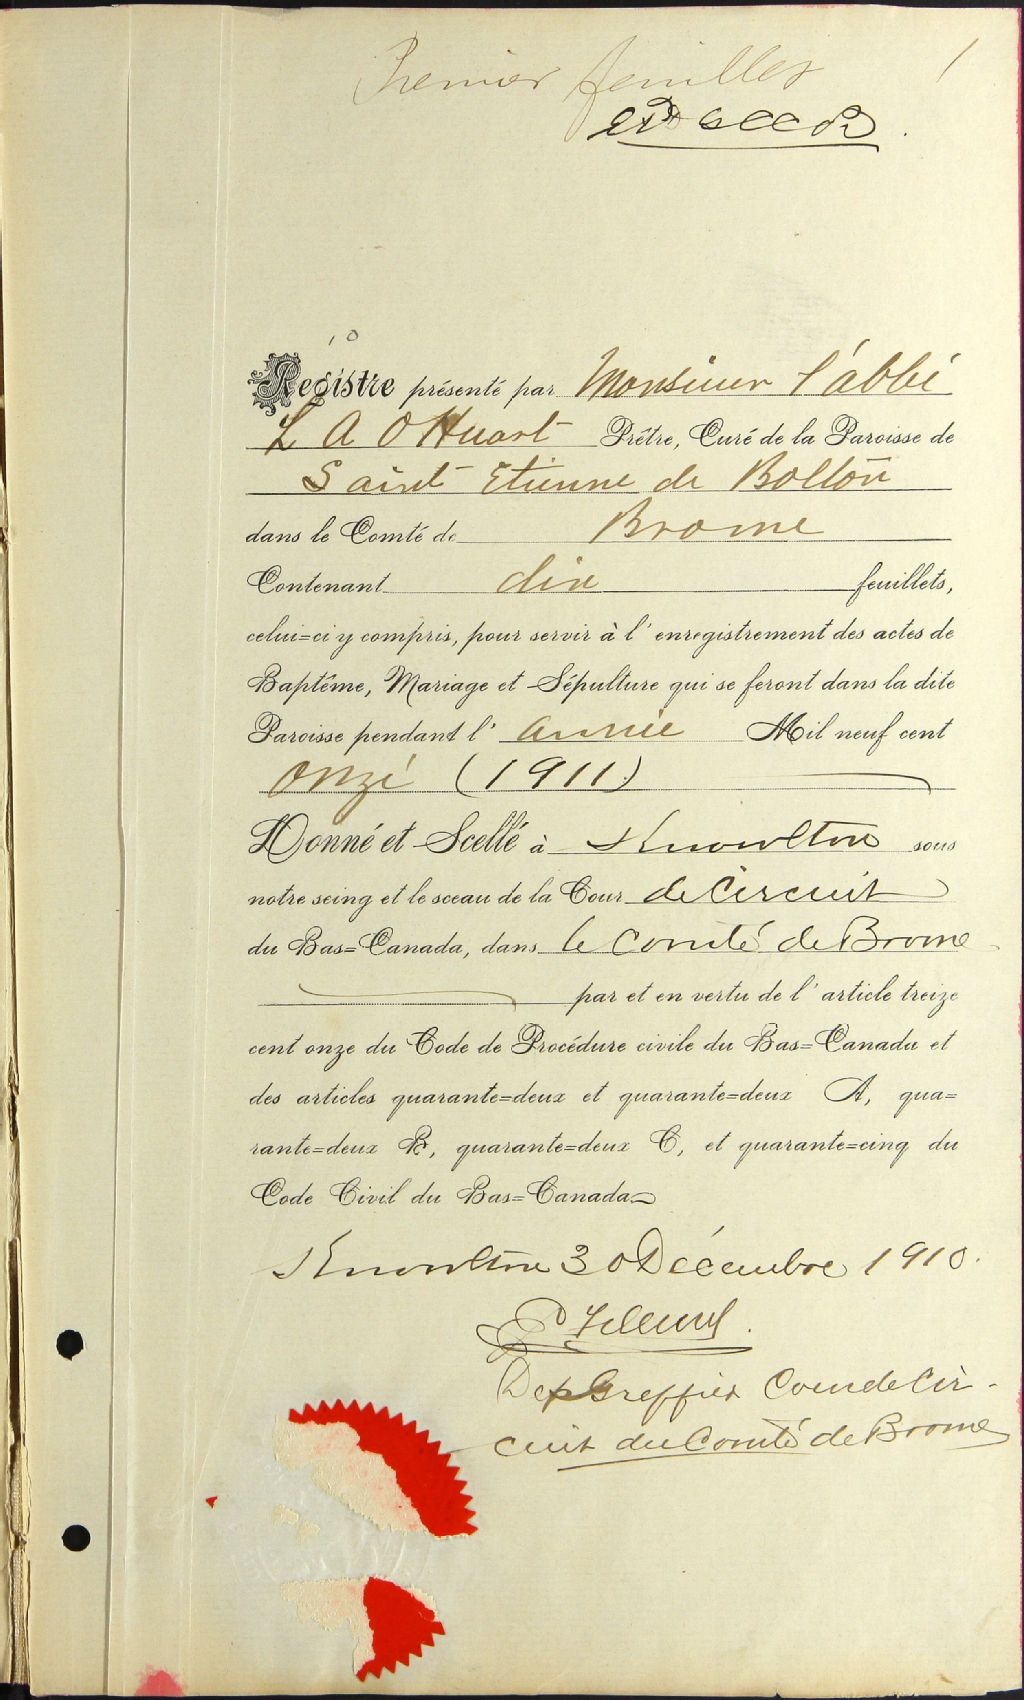 Premier feuillet 1
10
Registre présenté par Monsieur l'abbé
L A O Huart Prêtre, Curé de la Paroisse de
Saint Etienne de Bolton
dans le Comté de Brome
Contenant dix feuillets,
celui=ci y compris, pour servir à l'enregistrement des actes de
Baptême, Mariage et Sépulture qui se feront dans la dite
Paroisse pendant l'année Mil neuf cent
onze (1911)
Donné et Scellé à Knowlton sous
notre seing et le sceau de la Cour de Circuit
du Bas=Canada, dans le Comté de Brome
par et en vertu de l'article treize
cent onze du Code de Procédure civile du Bas=Canada et
des articles quarante=deux et quarante=deux A, qua=
rante=deux B, quarante=deux C, et quarante=cinq du
Code Civil du Bas=Canada
Knowlton 30 Décembre 1910.
Dep Greffier Cour de Cir-
cuit du Comté de Brome